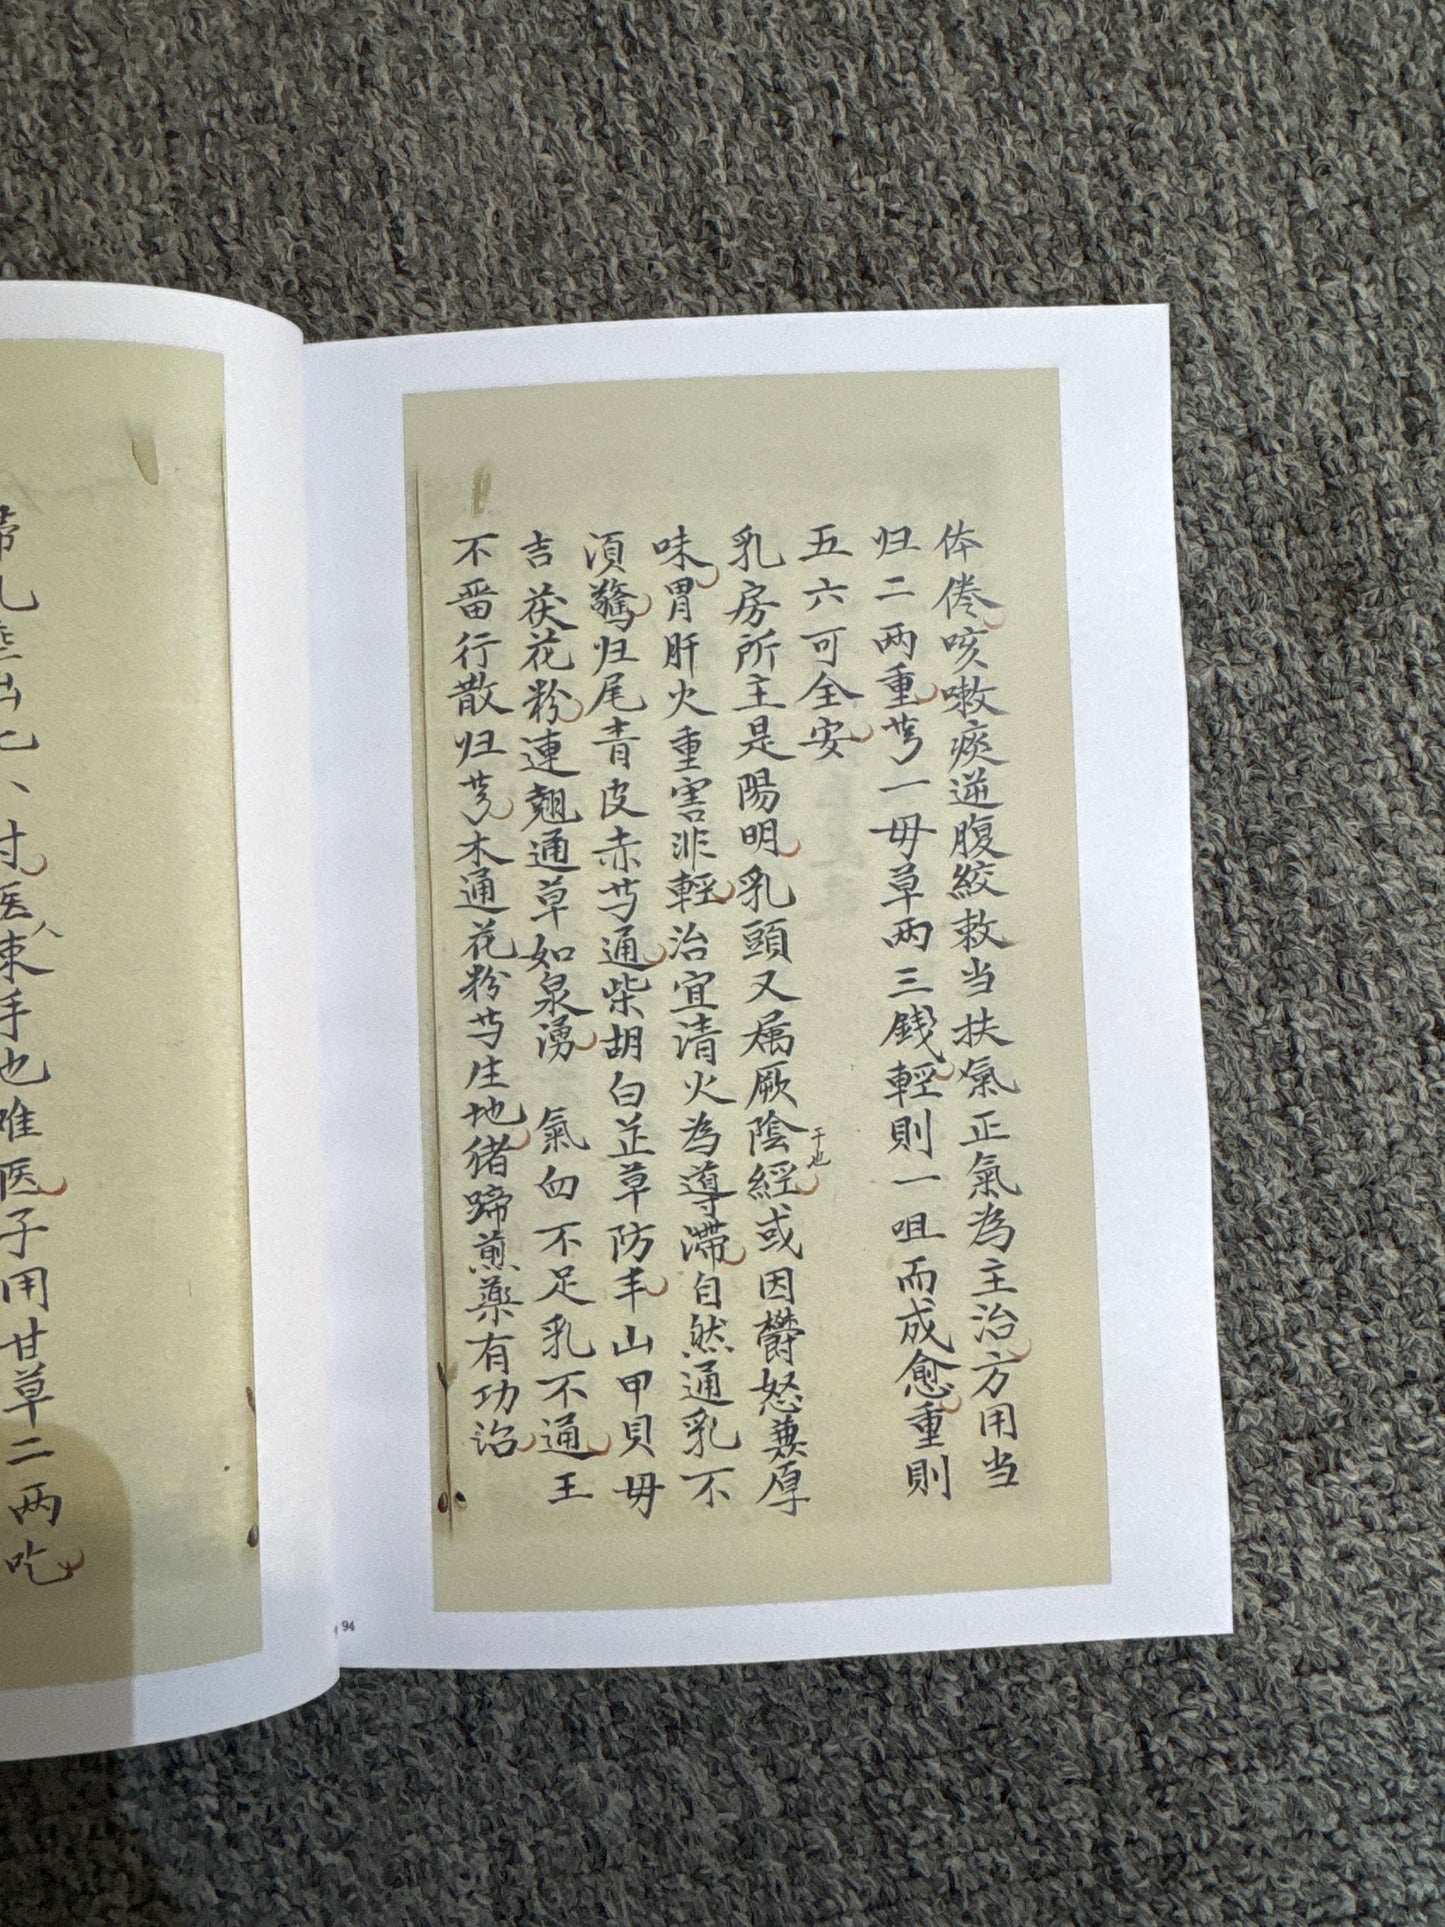 体倦咳嗽痰逆腹絞救当扶氣正氣為主治方用当
归二両重芎一毋草两三錢輕則一咀而成愈重則
五六可全安
乳房所主是陽明乳頭又属厥陰經或因欝怒兼厚
干也
味胃肝火重害非輕治宜清火為導滞自然通乳不
須驚归尾青皮赤芍通柴胡白芷草防丰山甲貝毋
吉茯花粉連翹通草如泉湧 氣血不足乳不通王
不畱行散归芎木通花粉芍庄地猪蹄煎藥有功治
手也难医子用甘草二两吃
94